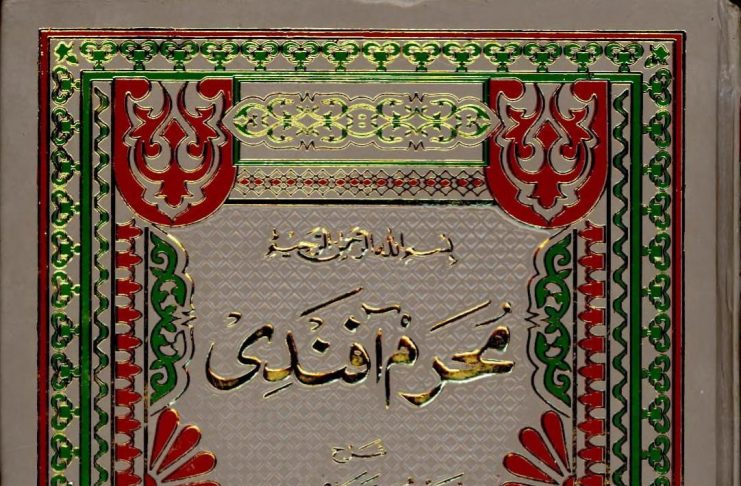 بسم الله الرحمن الرحيم
مُحَرَّمْ آفَنْدِىْ
شرح